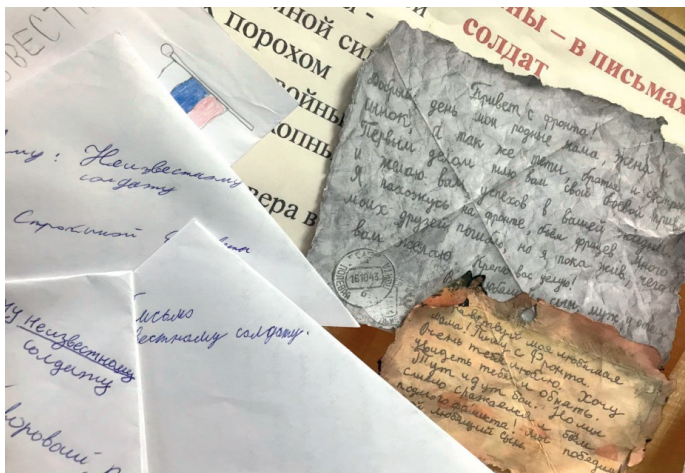 ВЕСТ
порохом
войны
ны – в письмах
солдат
вера в
му: Неизвестному
солдату
Неизвестному
солдату
Письмо
вестному солдату.
Привет с фронта!
Добрый день мои родные мама, жена и
сынок! А так же тети, братья и сестры
Первым делом шлю вам свой боевой
и желаю вам успехов в вашей жизни.
Я нахожусь на фронте, бьём фрицев. Много
моих друзей погибло, но я пока жив, чего и
вам желаю
Крепко вас целую!
сын, муж, и отец
16.10.43
моя любимая
мама! Пишу с фронта.
Очень тебя люблю. Хочу
увидеть тебя и обнять.
Тут идут бои. Но мы
смело сражаемся и бьём
Мы победим
й любящий сын.